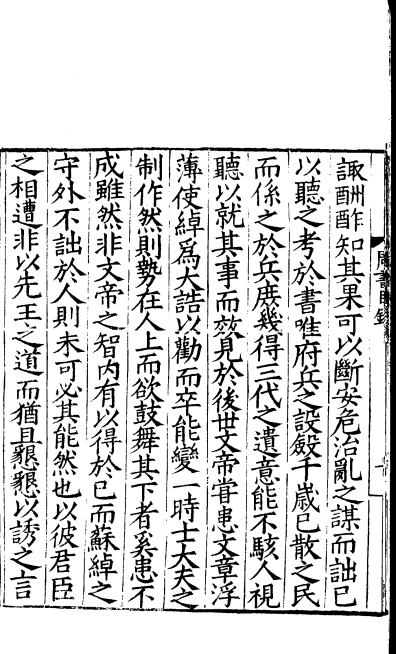 諏酬酢知其果可以斷安危治亂之謀而詘已
以聽之考於書唯府兵之設斂千歲已散之民
而係之於兵庶幾得三代之遺意能不駭人視
聽以就其事而效見於後世文帝嘗患文章浮
薄使綽爲大誥以勸而卒能變一時士大夫之
制作然則勢在人上而欲鼓舞其下者奚患不
成雖然非文帝之智内有以得於已而蘇綽之
守外不詘於人則未可必其能然也以彼君臣
之相遭非以先王之道而猶且懇懇以誘之言
周書目錄